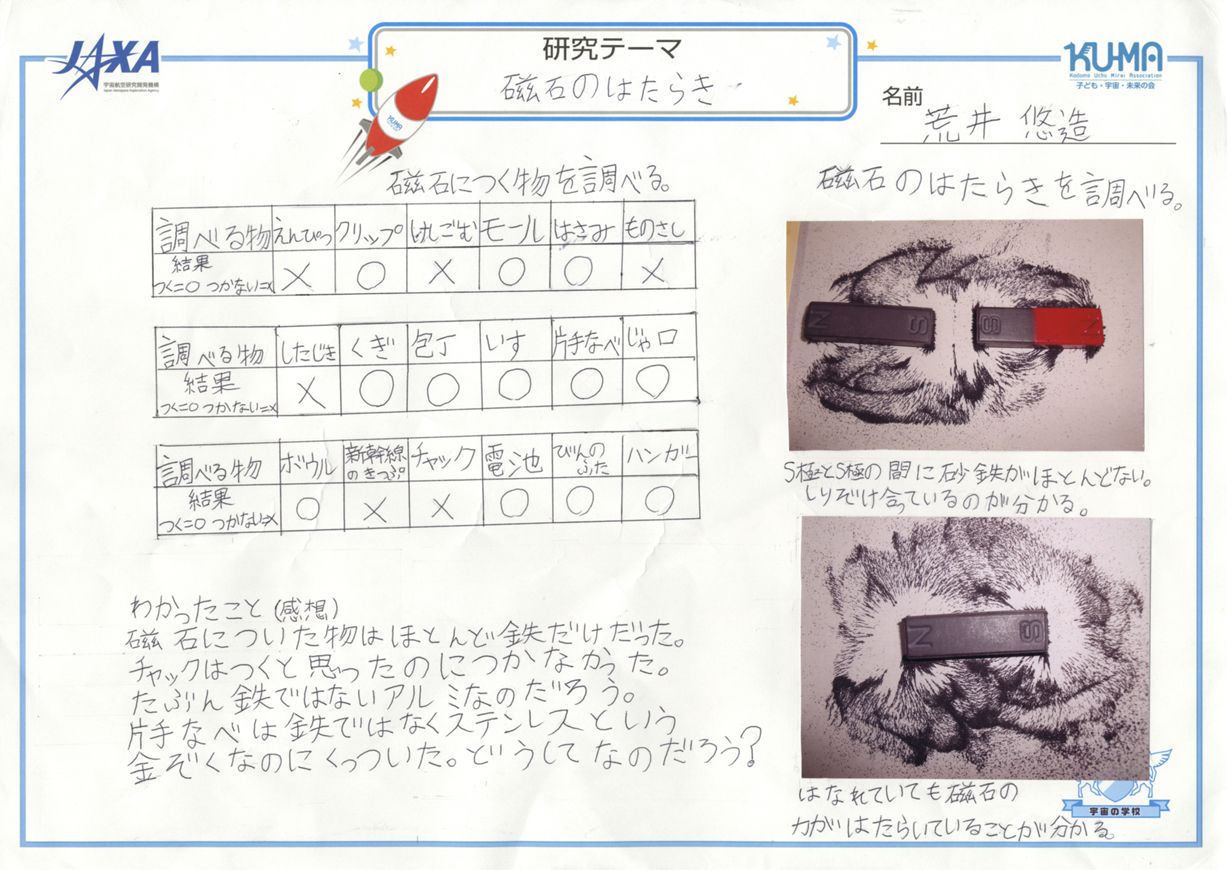 JAXA
宇宙航空研究開発機構
Japan Aerospace Exploration Agency
研究テーマ
磁石のはたらき
KUMA
KUMA
Kodomo Uchu Mirai Association
子ども・宇宙・未来の会
名前
荒井 悠造
磁石につく物を調べる。
調べる物 えんぴつ クリップ けしごむ モール はさみ ものさし
結果
つく=○ つかない=× × ○ × ○ ○ ×
調べる物 したじき くぎ 包丁 いす 片手なべ じゃ口
結果
つく=○ つかない=× × ○ ○ ○ ○ ○
調べる物 ボウル 新幹線のきっぷ チャック 電池 びんのふた ハンガー
結果
つく=○ つかない=× ○ × × ○ ○ ○
わかったこと(感想)
磁石についた物はほとんど鉄だけだった。
チャックはつくと思ったのにつかなかった。
たぶん鉄ではないアルミなのだろう。
片手なべは鉄ではなくステンレスという
金ぞくなのにくっついた。どうしてなのだろう?
磁石のはたらきを調べる。
N S S N
S極とS極の間に砂鉄がほとんどない。
しりぞけ合っているのが分かる。
N S
はなれていても磁石の
力がはたらいていることが分かる。
宇宙の学校